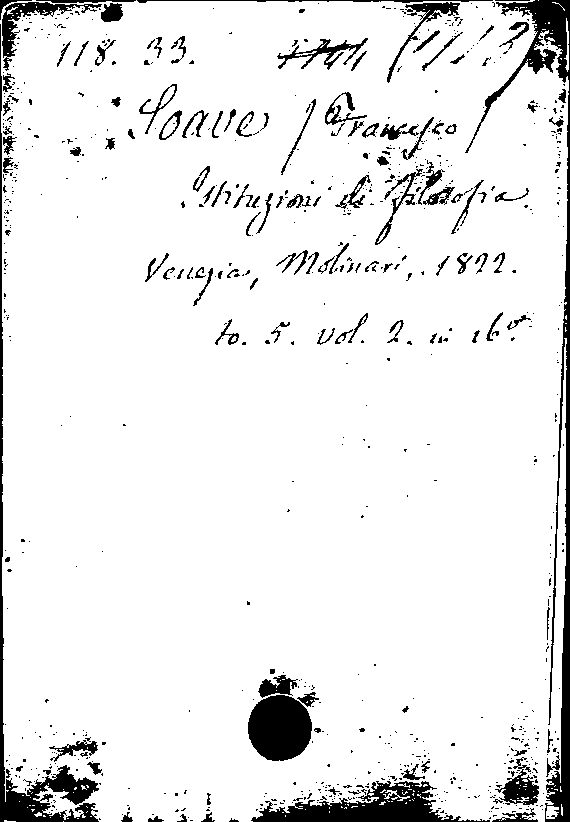 118. 33.
Soave / Francesco /
Istituzioni di filosofia.
Venezia, Molinari, 1822.
to. 5. vol. 2. in 16.º